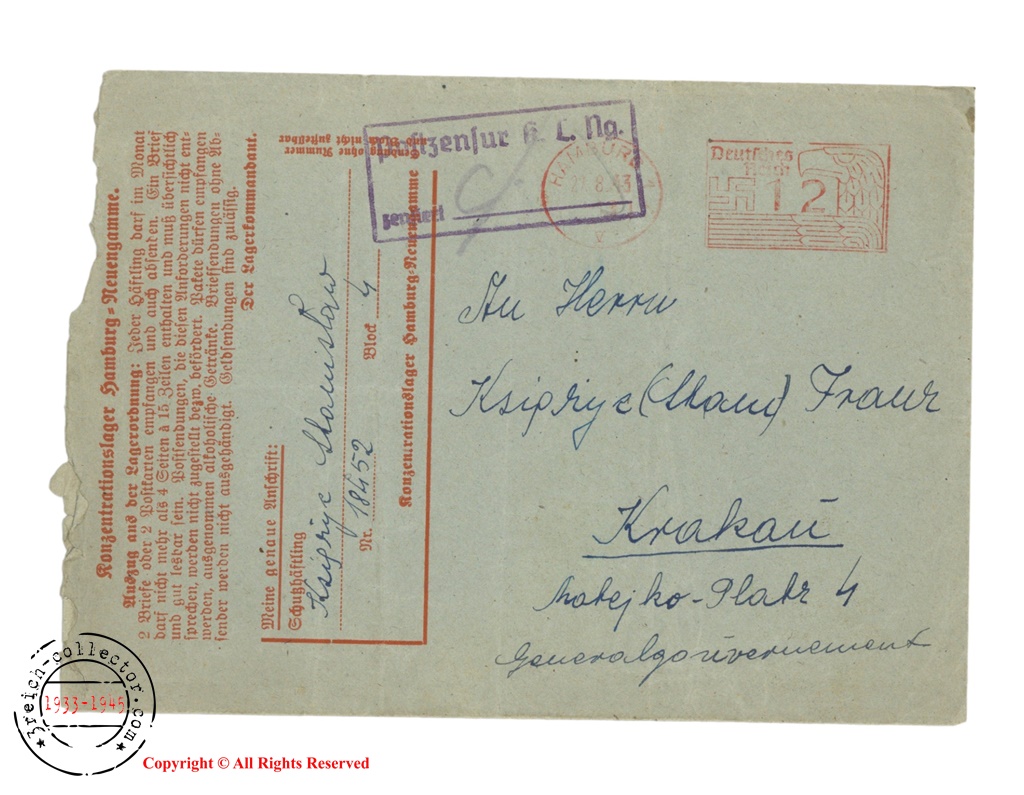 Konzentrationslager Hamburg-Neuengamme.
Auszug aus der Lagerordnung: Jeder Häftling darf im Monat
2 Briefe oder 2 Postkarten empfangen und auch absenden. Ein Brief
darf nicht mehr als 4 Seiten à 15 Zeilen enthalten und muß übersichtlich
und gut lesbar sein. Postsendungen, die diesen Anforderungen nicht ent-
sprechen, werden nicht zugestellt bezw. befördert. Pakete dürfen empfangen
werden, ausgenommen alkoholische Getränke. Briefsendungen ohne Ab-
sender werden nicht ausgehändigt. Geldsendungen sind zulässig.
Der Lagerkommandant.
Meine genaue Anschrift:
Schutzhäftling
Stanisław
Nr. 18452 Block 4
Konzentrationslager Hamburg-Neuengamme
Sendung ohne Nummer
und Block nicht zustellbar
Postzensur K. L. Ng.
zensiert
HAMBURG 1
21.8.43
Deutsches
Reich
12
An Herrn
Franz
Krakau
Matejko-Platz 4
Generalgouvernement
3reich-collector.com
1933-1945
Copyright © All Rights Reserved